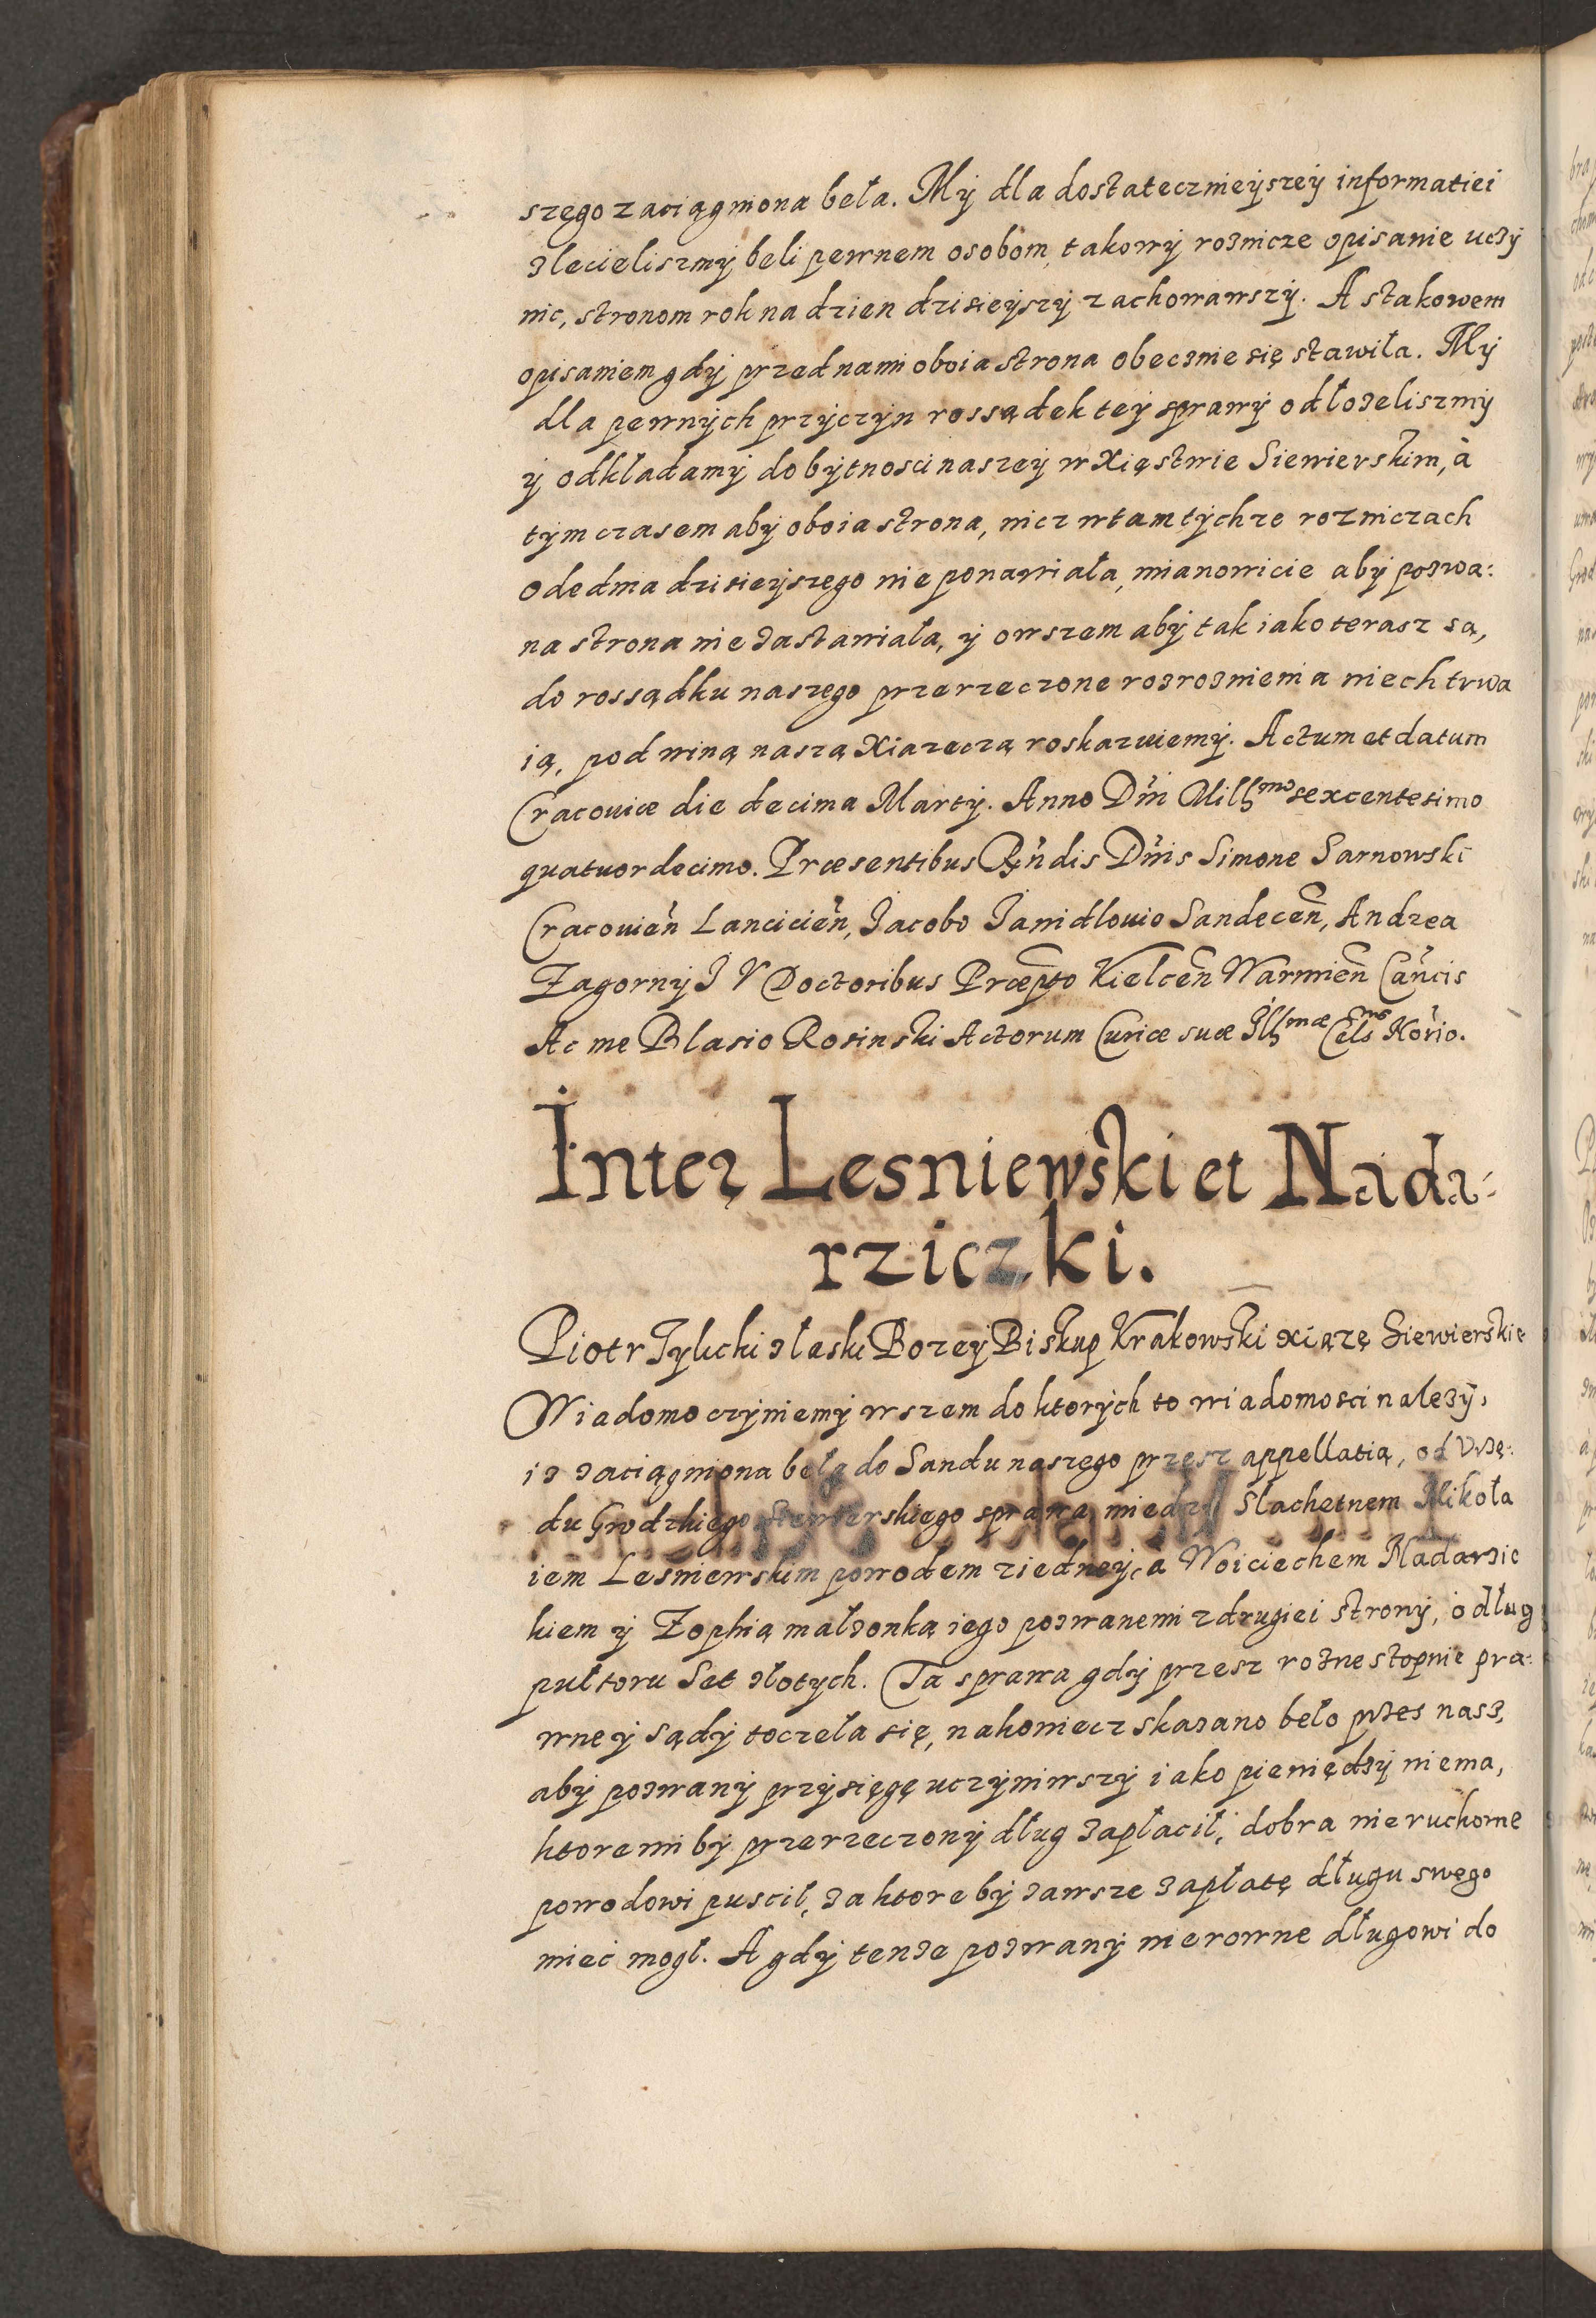 szęgo zaciągniona beła. My dla dostatecznieyszey informatiei
zlecieliszmy beli pewnem osobom, takowy roznicze opisanie uczy
nic, stronom rok na dzien dzisieyszy zachowawszy. A stakowem
opisaniem gdy przed nami oboia strona obecznie się stawiła. My
dla pewnych przyczyn rossądek tey sprawy odłozeliszmy
y odkładamy do bytnosci naszey w Xięstwie Siewierskim, à
tym czasem aby oboia strona, nicz wtamtychze rozniczach
odednia dzisieyszego nie ponawiała, mianowicie aby pozwa:
na strona nie zastawiała, y owszem aby tak iako terasz są,
do rossądku naszego przerzeczone rozroznienia niech trwa
ią, pod winą naszą Xiazeczą roskazuiemy. Actum et datum
Cracouiæ die decima Martÿ. Anno Dńi Mill͠mo sexcentesimo
quatuordecimo. Præsentibus Rńdis Dńis Simone Sarnowski
Cracouień Lancicień, Jacobo Janidlouio Sandeceń, Andrea
Zagorny J V Doctoribus Præpto Kielceń Warmień Cańcis
Ac me Blasio Rosinski Actorum Curiæ suæ Illmæ Celsmæ Nório.
Inter Lesniewski et Nada-
rziczki.
Piotr Tylicki z łaski Bozey Biskup Krakowski xiązę Siewierskie
Wiadomo czyniemy wszem do ktorych to wiadomosci nalezy,
iz zaciągniona beła do Sandu naszęgo przęsz appellatią, od Vrzę:
du Grodzkiego Siewierskiego sprawa miedzy Slachetnem Mikoła
iem Lesniewskim powodem ziedney, à Woiciechem Nadarzic
kiem y Zophią małzonką iego pozwanemi z drugiei strony, o dług
pułtoru Set złotych. Ta sprawa gdy przesz rozne stopnie pra:
wne y sądy toczeła się, nakoniecz skazano beło przes nasz,
aby pozwany przysięgę uczyniwszy iako pieniędzy niema,
ktoremi by przerzeczony dług zapłacił, dobra nieruchome
powodowi puscił, za ktore by zawsze zapłatę długu swęgo
mieć mogł. A gdy tenze pozwany nierowne długowi do